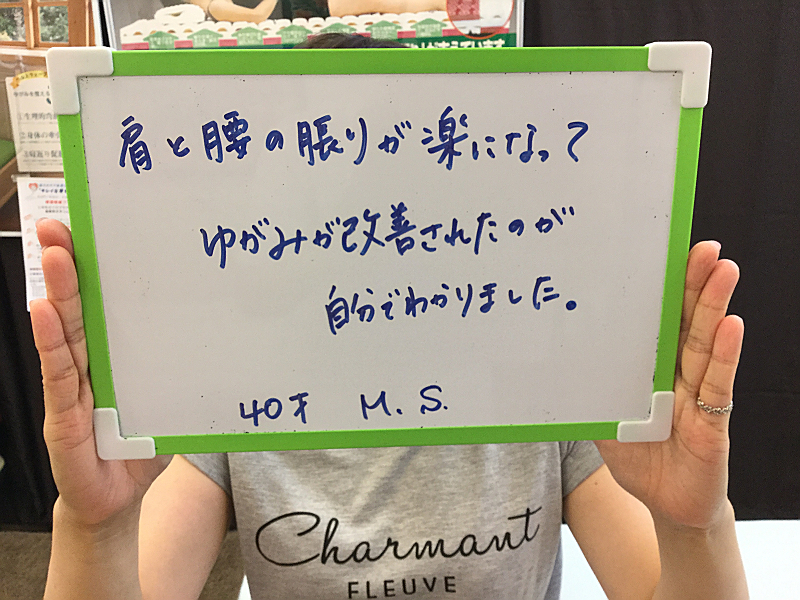 肩と腰の張りが楽になって
ゆがみが改善されたのが
自分でわかりました。
40才 M.S.
Charmant
FLEUVE